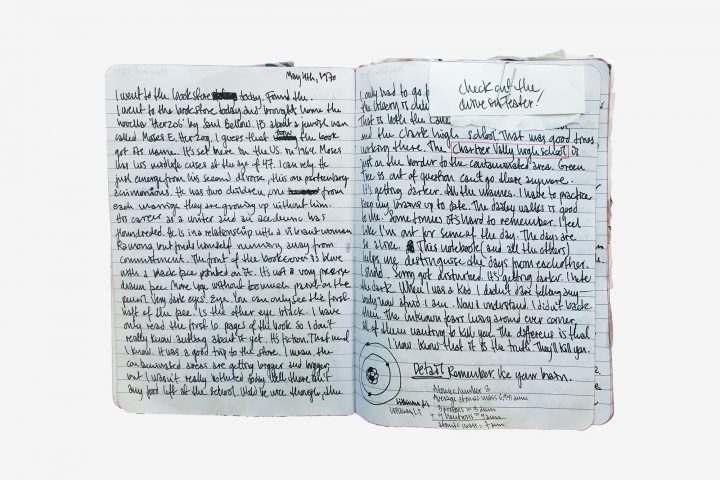 May 4th, 1970
I went to the bookstore today. Found the.
I went to the bookstore today and brought home the
novelle 'Herzog' by Saul Bellow. It's about a jewish man
called Moses E. Herzog. I guess that the book
got its name. It's set here in the US in 1964. Moses
has his midlife crises at the age of 47. I can rely. He
just emerge from his second divorse, this one particulary
acrimonions. He has two children, one from
each marriage they are growing up without him.
His career as a writer and an academic has
floundreded. He is in a relationship with a vibrant woman,
Ramona, but finds himself running away from
commitment. The front of the bookcover is blue
with a black face painted on it. It's not a very precise
drawn face. More like without too much paint on the
pencil. Very dark eyes. Eye. You can only see the first
half of the face. Is the other eye black. I have
only read the first 6 pages of the book so I don't
really know anthing about it yet. It's fiction. That much
I know. It was a good trip to the store. I mean the
contaminated areas are getting bigger and bigger,
but I wasn't really bothered today. Well, there isn't
any food left at the school. Would be nice though, the
I only had to go
the citizen is
That is both the
check out the
drive in teater!
and the chark high school. That was good times
working there. The Chartier Vally high school is
just on the border to the contaminated area. Green
Tree is out of question. Can't go there anymore.
It's getting darker. All the names. I have to practice
keep my brains up to date. The dailey walks is good
to me. Some times it's hard to remember. I feel
like I'm out for some of the day. The days are
so alike. This notebook (and all the others)
helps me distinguise the days from eachother.
Sound. Sorry got disturned. It's getting darker. I hate
the dark. When I was a kid I didn't dare telling any-
body how afraid I am. Now I understand. I didn't back
then. The unknown fears lying around ever corner,
all of them wanting to kill you. The differense is that
I now know that it is the truth. They'll kill you.
Detail. Remember. Use your brain.
Atomic number 3
Average atomic mass 6,941 amu
3 protons = 3 amu
+ 4 neutrons = 4 amu
atomic mass = 7 amu